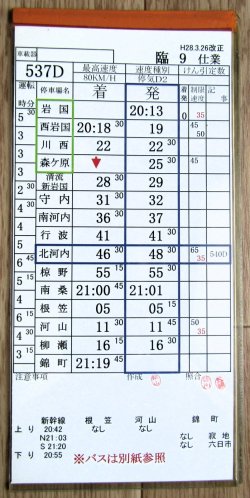 H28.3.26改正
車載器 臨 9 仕業
537D 最高速度 80KM/H 速度種別 停気D2 けん引定数
運転時分 停車場名 着 発 着発 制限速度 記事
岩国 20:13 0 35
5 30 西岩国 20:18 30 19 45 50
3 川西 22 22 30
3 森ケ原 ▼ 25 30 45
3 清流新岩国 28 29
3 守内 31 30 32
4 30 南河内 36 30 37
4 30 行波 41 41 30
4 北河内 46 30 48 30 65 35 540D
6 45 椋野 55 15 55 30
南桑 21:00 45 21:01
4 根笠 05 05 15
6 15 河山 11 11 45 50 35
4 30 柳瀬 16 15 16 30
3 15 錦町 21:19 45
注意事項 作成 照合
新幹線 根笠 河山 錦町
上り 20:42 なし なし
N21:03 なし 寂地
S 21:20 なし 六日市
下り 20:55
※バスは別紙参照